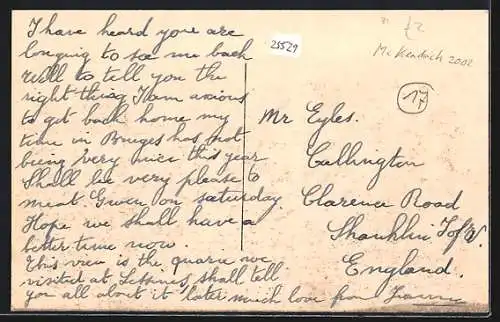 I have heard you are
longing to see me back
Well to tell you the
right thing I am anxious
to get back home my
time in Bruges has not
being very nice this year
Shall be very please to
meat Gwen on saturday
Hope we shall have a
better time now.
This view is the quarie we
visited at Lessines shall tell
you all about it later much love from
25529
£2
McKendrick 2002
17
Mr Eyles.
Callington
Clarence Road
Shanklin I of W.
England.